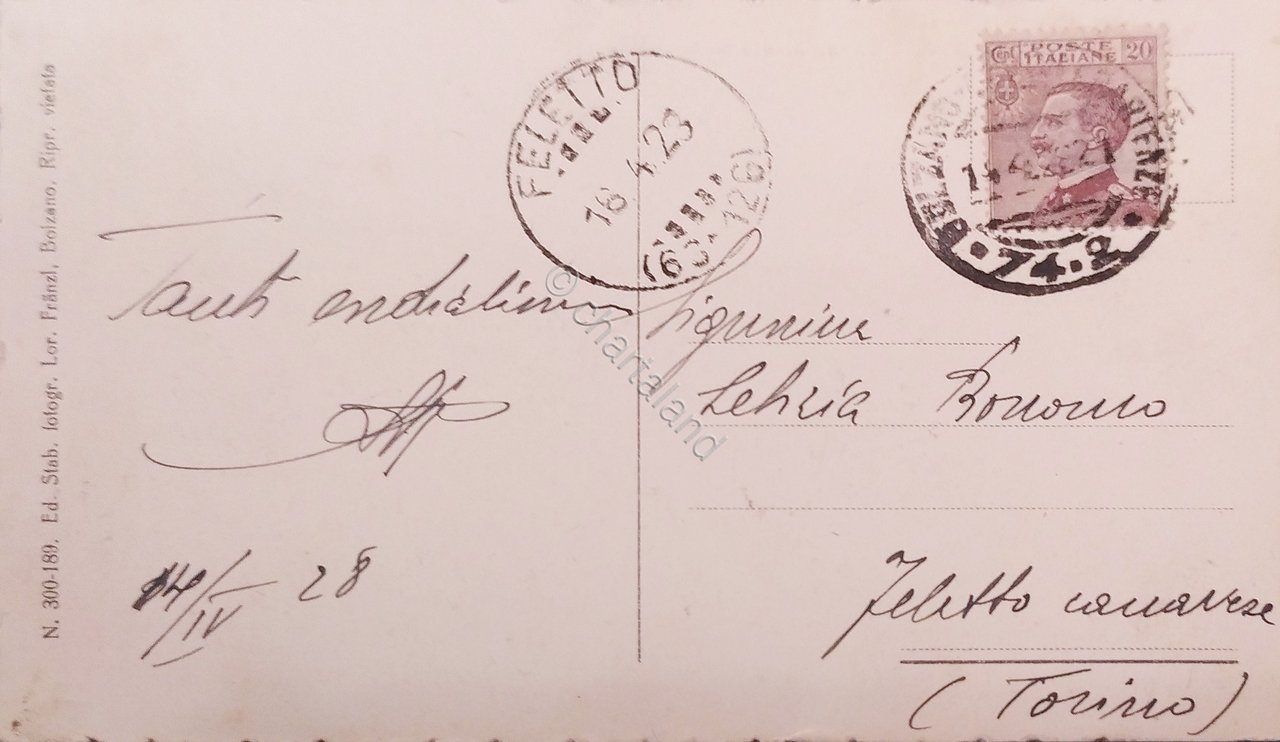 N. 300-189. Ed. Stab. fotogr. Lor. Fränzl, Bolzano. Ripr. vietata
FELETTO
16 4 23
(6) 126
Cent POSTE 20
ITALIANE
BOLZANO PARTENZE
74.2
Tanti cordialissimi
14/IV 28
Signorina
Letizia Bonomo
Feletto canavese
(Torino)
© chartaland